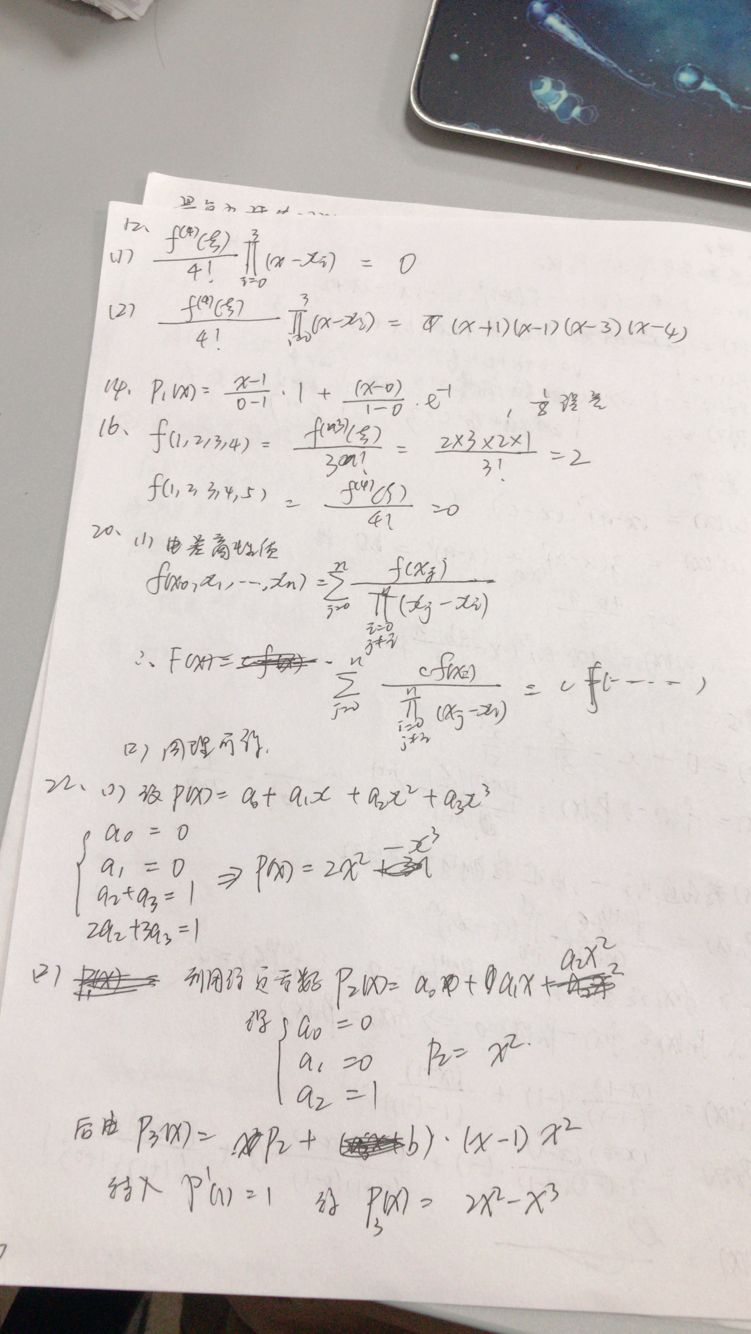 12、
(1) f⁽⁴⁾(ξ)/4! ∏_{i=0}^{3}(x-x_i) = 0
(2) f⁽⁴⁾(ξ)/4! ∏_{i=0}^{3}(x-x_i) = (x+1)(x-1)(x-3)(x-4)
14、P₁(x) = (x-1)/(0-1) · 1 + (x-0)/(1-0) · e⁻¹ , 1/8 误差
16、f(1,2,3,4) = f⁽³⁾(ξ)/3! = 2×3×2×1/3! = 2
f(1,2,3,4,5) = f⁽⁴⁾(ξ)/4! = 0
20、(1) 由差商性质
f(x₀,x₁,…,xₙ) = ∑_{j=0}^{n} f(x_j)/∏_{i=0, j≠i}^{n}(x_j-x_i)
∴ F(x) = ∑_{j=0}^{n} cf(x_i)/∏_{i=0, j≠i}^{n}(x_j-x_i) = c f(----)
(2) 同理可得.
22、(1) 设 P(x) = a₀ + a₁x + a₂x² + a₃x³
a₀ = 0
a₁ = 0 ⇒ P(x) = 2x² -x³
a₂+a₃ = 1
2a₂+3a₃ = 1
(2) 利用 P₂(x) = a₀ + a₁x + a₂x²
得 a₀ = 0
a₁ = 0 P₂ = x².
a₂ = 1
后由 P₃(x) = P₂ + b) · (x-1) x²
代入 P'(1) = 1 得 P₃(x) = 2x²-x³